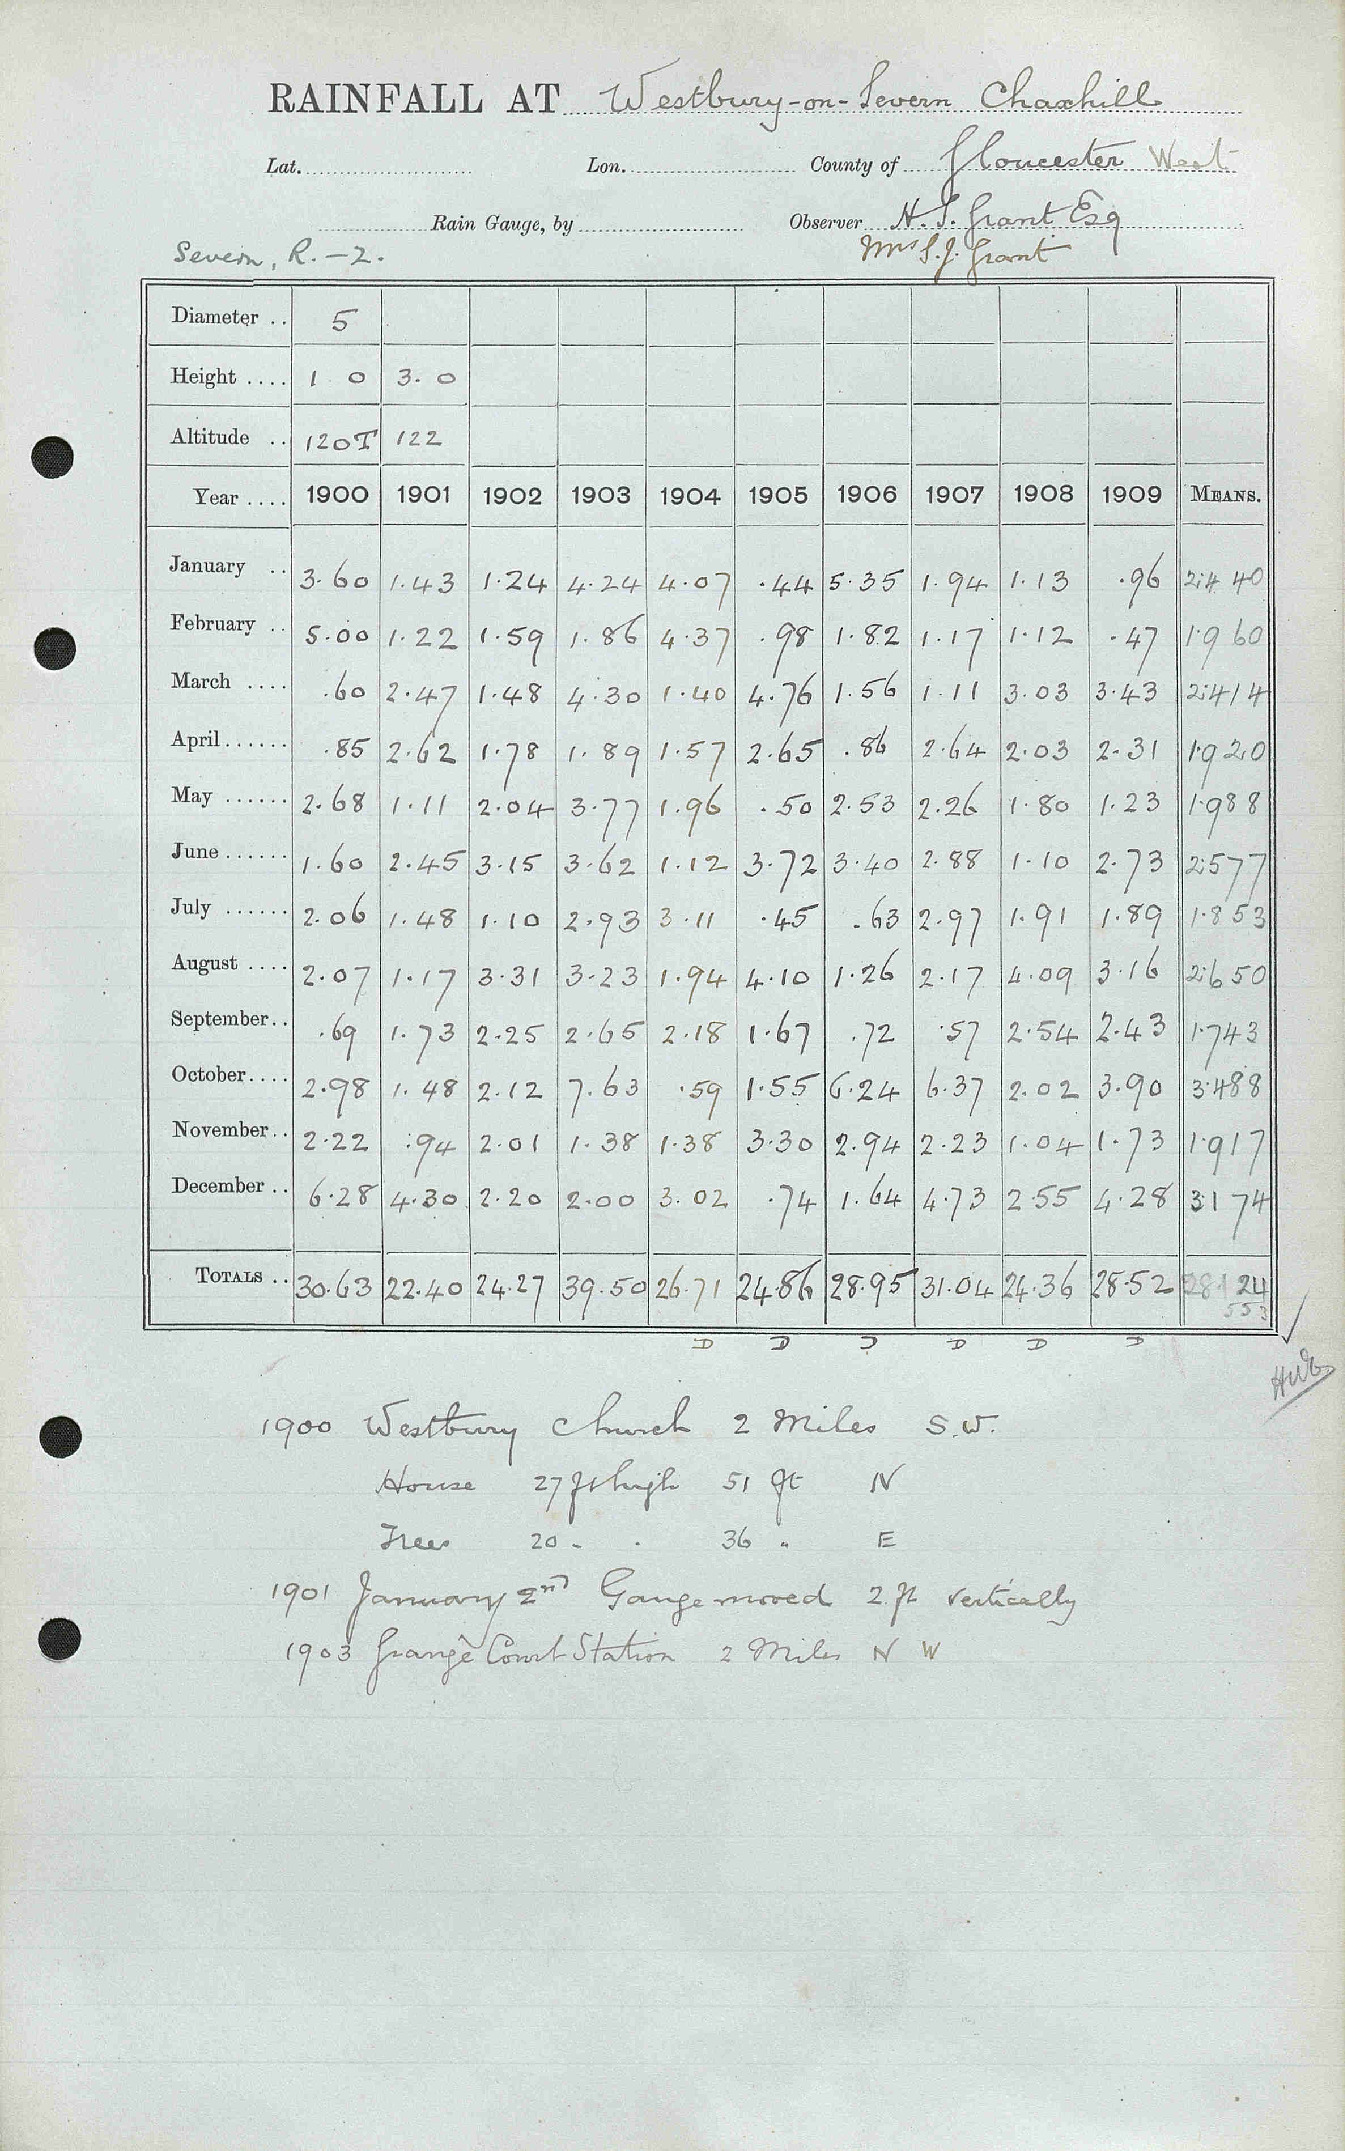 RAINFALL AT Westbury-on-Severn Chaxhill
Lat. Lon. County of Gloucester West
Rain Gauge, by Observer H. S. Grant Esq
Severn, R. - 2. Mrs S. J. Grant
Diameter .. 5
Height .... 1 0 3. 0
Altitude .. 120T 122
Year .... 1900 1901 1902 1903 1904 1905 1906 1907 1908 1909 MEANS.
January .. 3.60 1.43 1.24 4.24 4.07 .44 5.35 1.94 1.13 .96 2.4 40
February .. 5.00 1.22 1.59 1.86 4.37 .98 1.82 1.17 1.12 .47 1.9 60
March .... .60 2.47 1.48 4.30 1.40 4.76 1.56 1.11 3.03 3.43 2.414
April...... .85 2.62 1.78 1.89 1.57 2.65 .86 2.64 2.03 2.31 1.920
May ...... 2.68 1.11 2.04 3.77 1.96 .50 2.53 2.26 1.80 1.23 1.988
June...... 1.60 2.45 3.15 3.62 1.12 3.72 3.40 2.88 1.10 2.73 2.577
July ...... 2.06 1.48 1.10 2.93 3.11 .45 .63 2.97 1.91 1.89 1.853
August .... 2.07 1.17 3.31 3.23 1.94 4.10 1.26 2.17 4.09 3.16 2.650
September.. .69 1.73 2.25 2.65 2.18 1.67 .72 .57 2.54 2.43 1.743
October.... 2.98 1.48 2.12 7.63 .59 1.55 6.24 6.37 2.02 3.90 3.488
November.. 2.22 .94 2.01 1.38 1.38 3.30 2.94 2.23 1.04 1.73 1.917
December .. 6.28 4.30 2.20 2.00 3.02 .74 1.64 4.73 2.55 4.28 3.174
TOTALS .. 30.63 22.40 24.27 39.50 26.71 24.86 28.95 31.04 24.36 28.52 28.124
D D D D D D
1900 Westbury Church 2 Miles S.W.
House 27 ft high 51 ft N
Trees 20 " " 36 " E
1901 January 2nd Gauge moved 2 ft vertically
1903 Grange Court Station 2 Miles N W